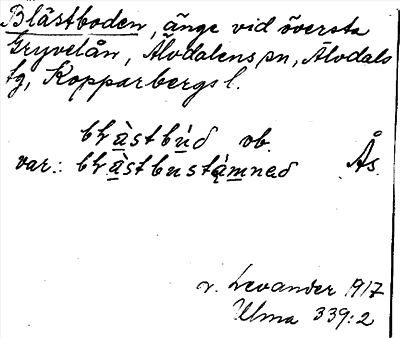 Blästboden, änge vid översta
Gryvelån, Älvdalens sn, Älvdals
tg, Kopparbergs l.
blästbud ob. Ås
var.: blästbustämned
v. Levander 1917
Ulma 339:2